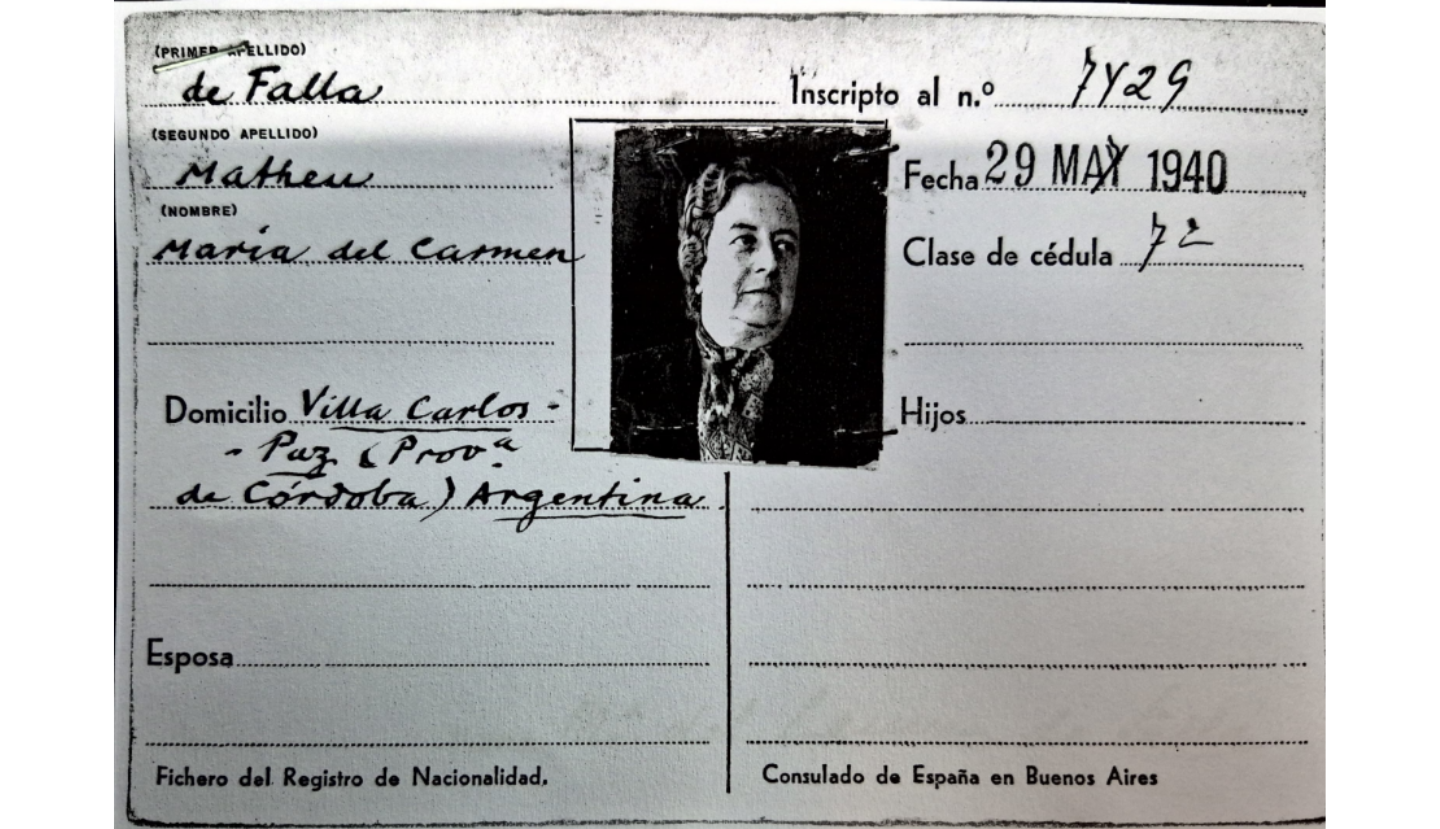 (PRIMER APELLIDO)
de Falla
Inscripto al n.º 7429
(SEGUNDO APELLIDO)
Matheu
Fecha 29 MAY 1940
(NOMBRE)
María del Carmen
Clase de cédula 7ª
Domicilio Villa Carlos-
-Paz (Provª
de Córdoba) Argentina.
Hijos
Esposa
Fichero del Registro de Nacionalidad.
Consulado de España en Buenos Aires